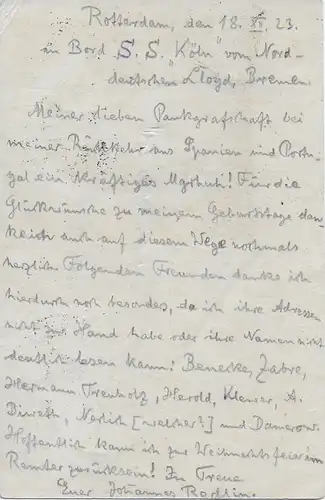 Rotterdam, den 18. XI. 23.
an Bord S. S. "Köln" vom Nord-
deutschen Lloyd, Bremen
Meiner lieben Pankgrafschaft bei
meiner Rückkehr aus Spanien und Portu-
gal ein kräftiges Für die
Glückwünsche zu meinem Geburtstage dan-
ke ich auch auf diesem Wege nochmals
herzlich Folgenden Freunden danke ich
hierdurch noch besonders, da ich ihre Adressen
nicht zur Hand habe oder ihre Namen nicht
deutlich lesen kann: Benecke, Zabre,
Hermann Trenholz, Herold, A.
Nerlich [welcher?] und Damerow.
Hoffentlich kann ich zur Weihnachtsfeier im
Remter zurück sein! In Treue
Euer Johannes